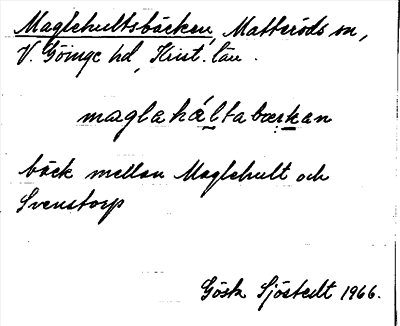 Maglehultsbäcken, Matteröds sn,
V. Göinge hd, Krist. län.
maglahúltabærkan
bäck mellan Maglehult och
Svenstorp
Gösta Sjöstedt 1966.